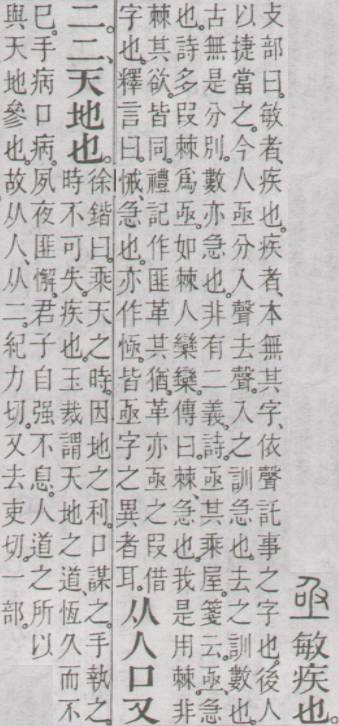 亟 敏疾也。
攴部曰。敏者、疾也。疾者、本無其字、依聲託事之字也。後人
以捷當之。今人亟分入聲去聲。入之訓急也。去之訓數也。
古無是分別。數亦急也。非有二義。詩亟其乘屋。箋云。亟急
也。詩多叚棘爲亟。如棘人欒欒。傳曰。棘、急也。我是用棘。非
棘其欲。皆同。禮記作匪革其猶。革亦亟之叚借
字也。釋言曰。悈、急也。亦作㥛。皆亟字之異者耳。
从人口又
二。二、天地也。
徐鍇曰。乘天之時。因地之利。口謀之。手執之。
時不可失。疾也。玉裁謂天地之道、恆久而不
已。手病口病。夙夜匪懈。君子自强不息。人道之所以
與天地參也。故从人、从二。紀力切。又去吏切。一部。